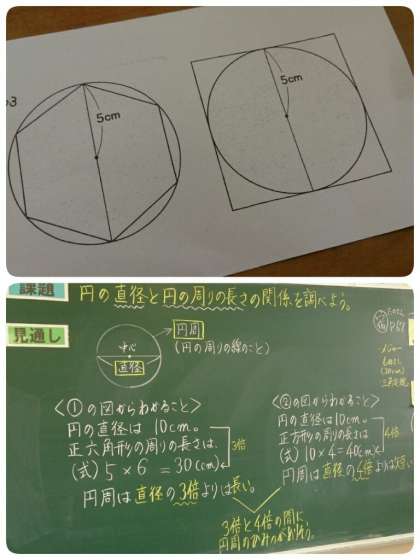 5cm
5cm
課題
円の直径と円の周りの長さの関係を調べよう。
見通し
円周
(円の周りの線のこと)
中心
直径
<①の図からわかること>
円の直径は 10cm。
正六角形の周りの長さは
(式) 5×6=30(cm)
3倍
円周は直径の3倍よりは長い。
<②の図からわかること>
円の直径は10cm。
正方形の周りの長さは
(式) 10×4=40(cm)
4倍
円周は直径の4倍よりは短い
3倍と4倍の間に
円周のひみつがありそう。